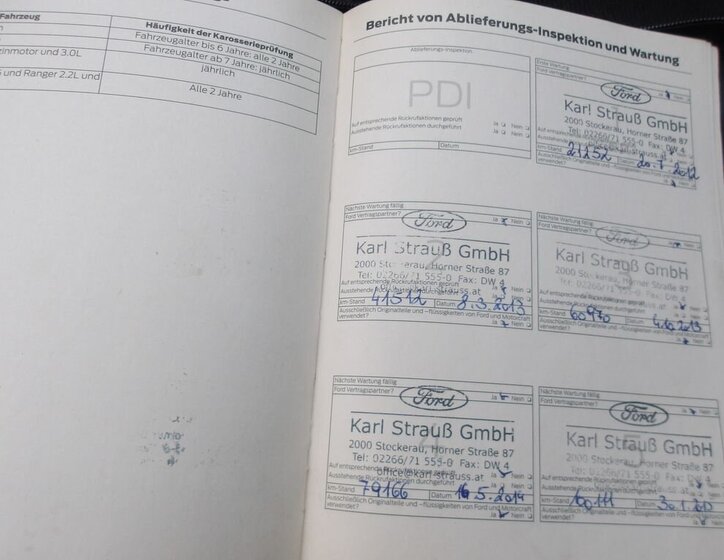 Fahrzeug
Häufigkeit der Karosserieprüfung
Fahrzeugalter bis 6 Jahre: alle 2 Jahre
Fahrzeugalter ab 7 Jahre: jährlich
zinmotor und 3.0L
jährlich
und Ranger 2.2L und
Alle 2 Jahre
Bericht von Ablieferungs-Inspektion und Wartung
Ablieferungs-Inspektion
PDI
Auf entsprechende Rückrufaktionen geprüft
Ja Nein
Ausstehende Rückrufaktionen durchgeführt
Ja Nein
km-Stand Datum
Erste Wartung
Ford Vertragspartner? Ja Nein
Ford
Karl Strauß GmbH
2000 Stockerau, Horner Straße 87
Tel: 02266/71 555-0 Fax: DW 4
km-Stand 21252 Datum 20.7.2012
Ausschließlich Originalteile und -flüssigkeiten von Ford und Motorcraft verwendet? Ja Nein
Nächste Wartung fällig
Ford Vertragspartner? Ja Nein
Ford
2
Karl Strauß GmbH
2000 Stockerau, Horner Straße 87
Tel: 02266/71 555-0 Fax: DW 4
Auf entsprechende Rückrufaktionen geprüft
km-Stand 41512 Datum 8.3.2013
Ausschließlich Originalteile und -flüssigkeiten von Ford und Motorcraft
verwendet? Ja Nein
Nächste Wartung fällig
Ford Vertragspartner? Ja Nein
Ford
Karl Strauß GmbH
2000 Stockerau, Horner Straße 87
Tel: 02266/71 555-0 Fax: DW 4
Auf entsprechende Rückrufaktionen geprüft
km-Stand 60970 Datum 4.10.2013
Ausschließlich Originalteile und -flüssigkeiten von Ford und Motorcraft
verwendet? Ja Nein
Nächste Wartung fällig
Ford Vertragspartner? Ja Nein
Ford
4
Karl Strauß GmbH
2000 Stockerau, Horner Straße 87
Tel: 02266/71 555-0 Fax: DW 4
Auf entsprechende Rückrufaktionen geprüft
office@karl-strauss.at
km-Stand 79166 Datum 16.5.2014
Ausschließlich Originalteile und -flüssigkeiten von Ford und Motorcraft
verwendet? Ja Nein
Nächste Wartung fällig
Ford Vertragspartner? Ja Nein
Ford
Karl Strauß GmbH
2000 Stockerau, Horner Straße 87
Tel: 02266/71 555-0 Fax: DW 4
km-Stand Datum
Ausschließlich Originalteile und -flüssigkeiten von Ford und Motorcraft
verwendet? Ja Nein